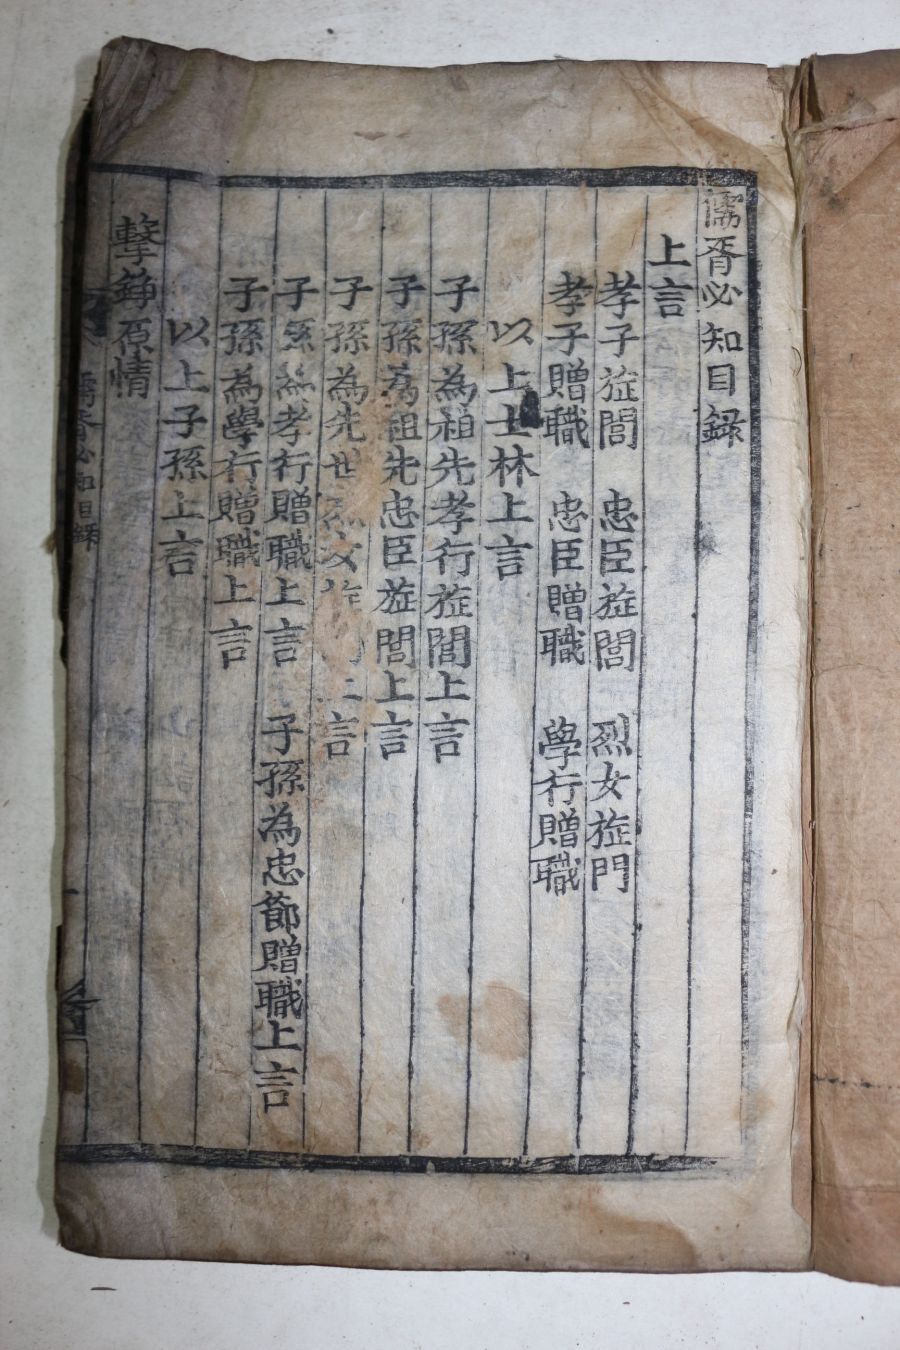 儒胥必知目錄
上言
孝子㫌閭 忠臣㫌閭 烈女㫌門
孝子贈職 忠臣贈職 學行贈職
以上士林上言
子孫為祖先孝行㫌閭上言
子孫為祖先忠臣㫌閭上言
子孫為先世 女 上言
子孫為孝行贈職上言 子孫為忠節贈職上言
子孫為學行贈職上言
以上子孫上言
擊錚原情
儒胥必知目錄